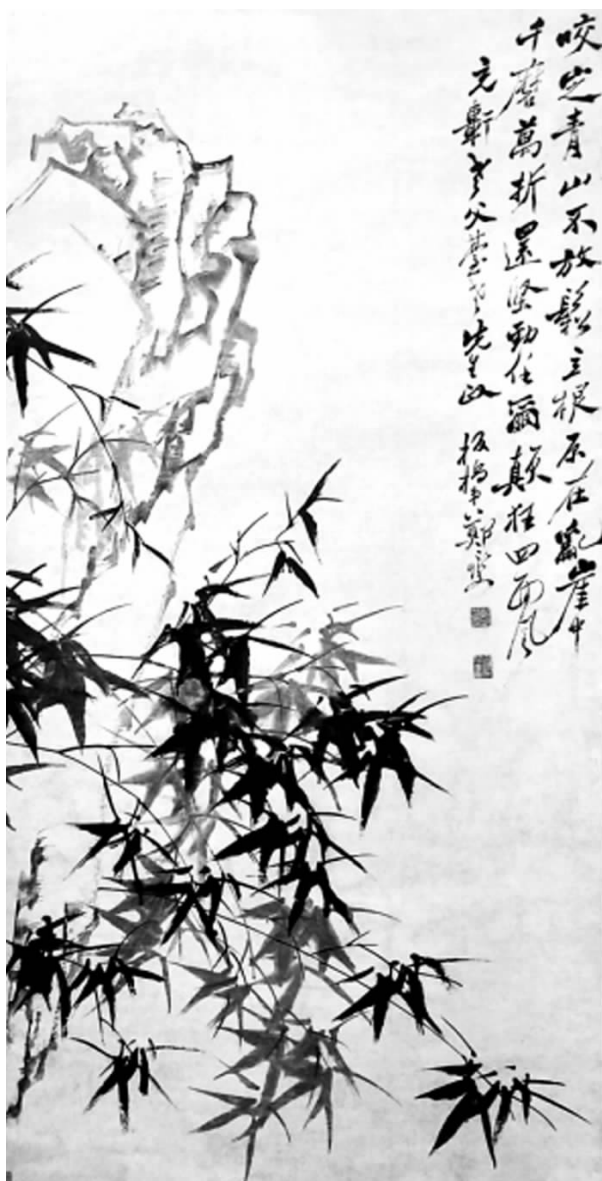 咬定青山不放鬆立根原在亂崖中
千磨萬折還堅勁任爾顛狂四面風
充軒老父臺老先生政 板橋鄭燮